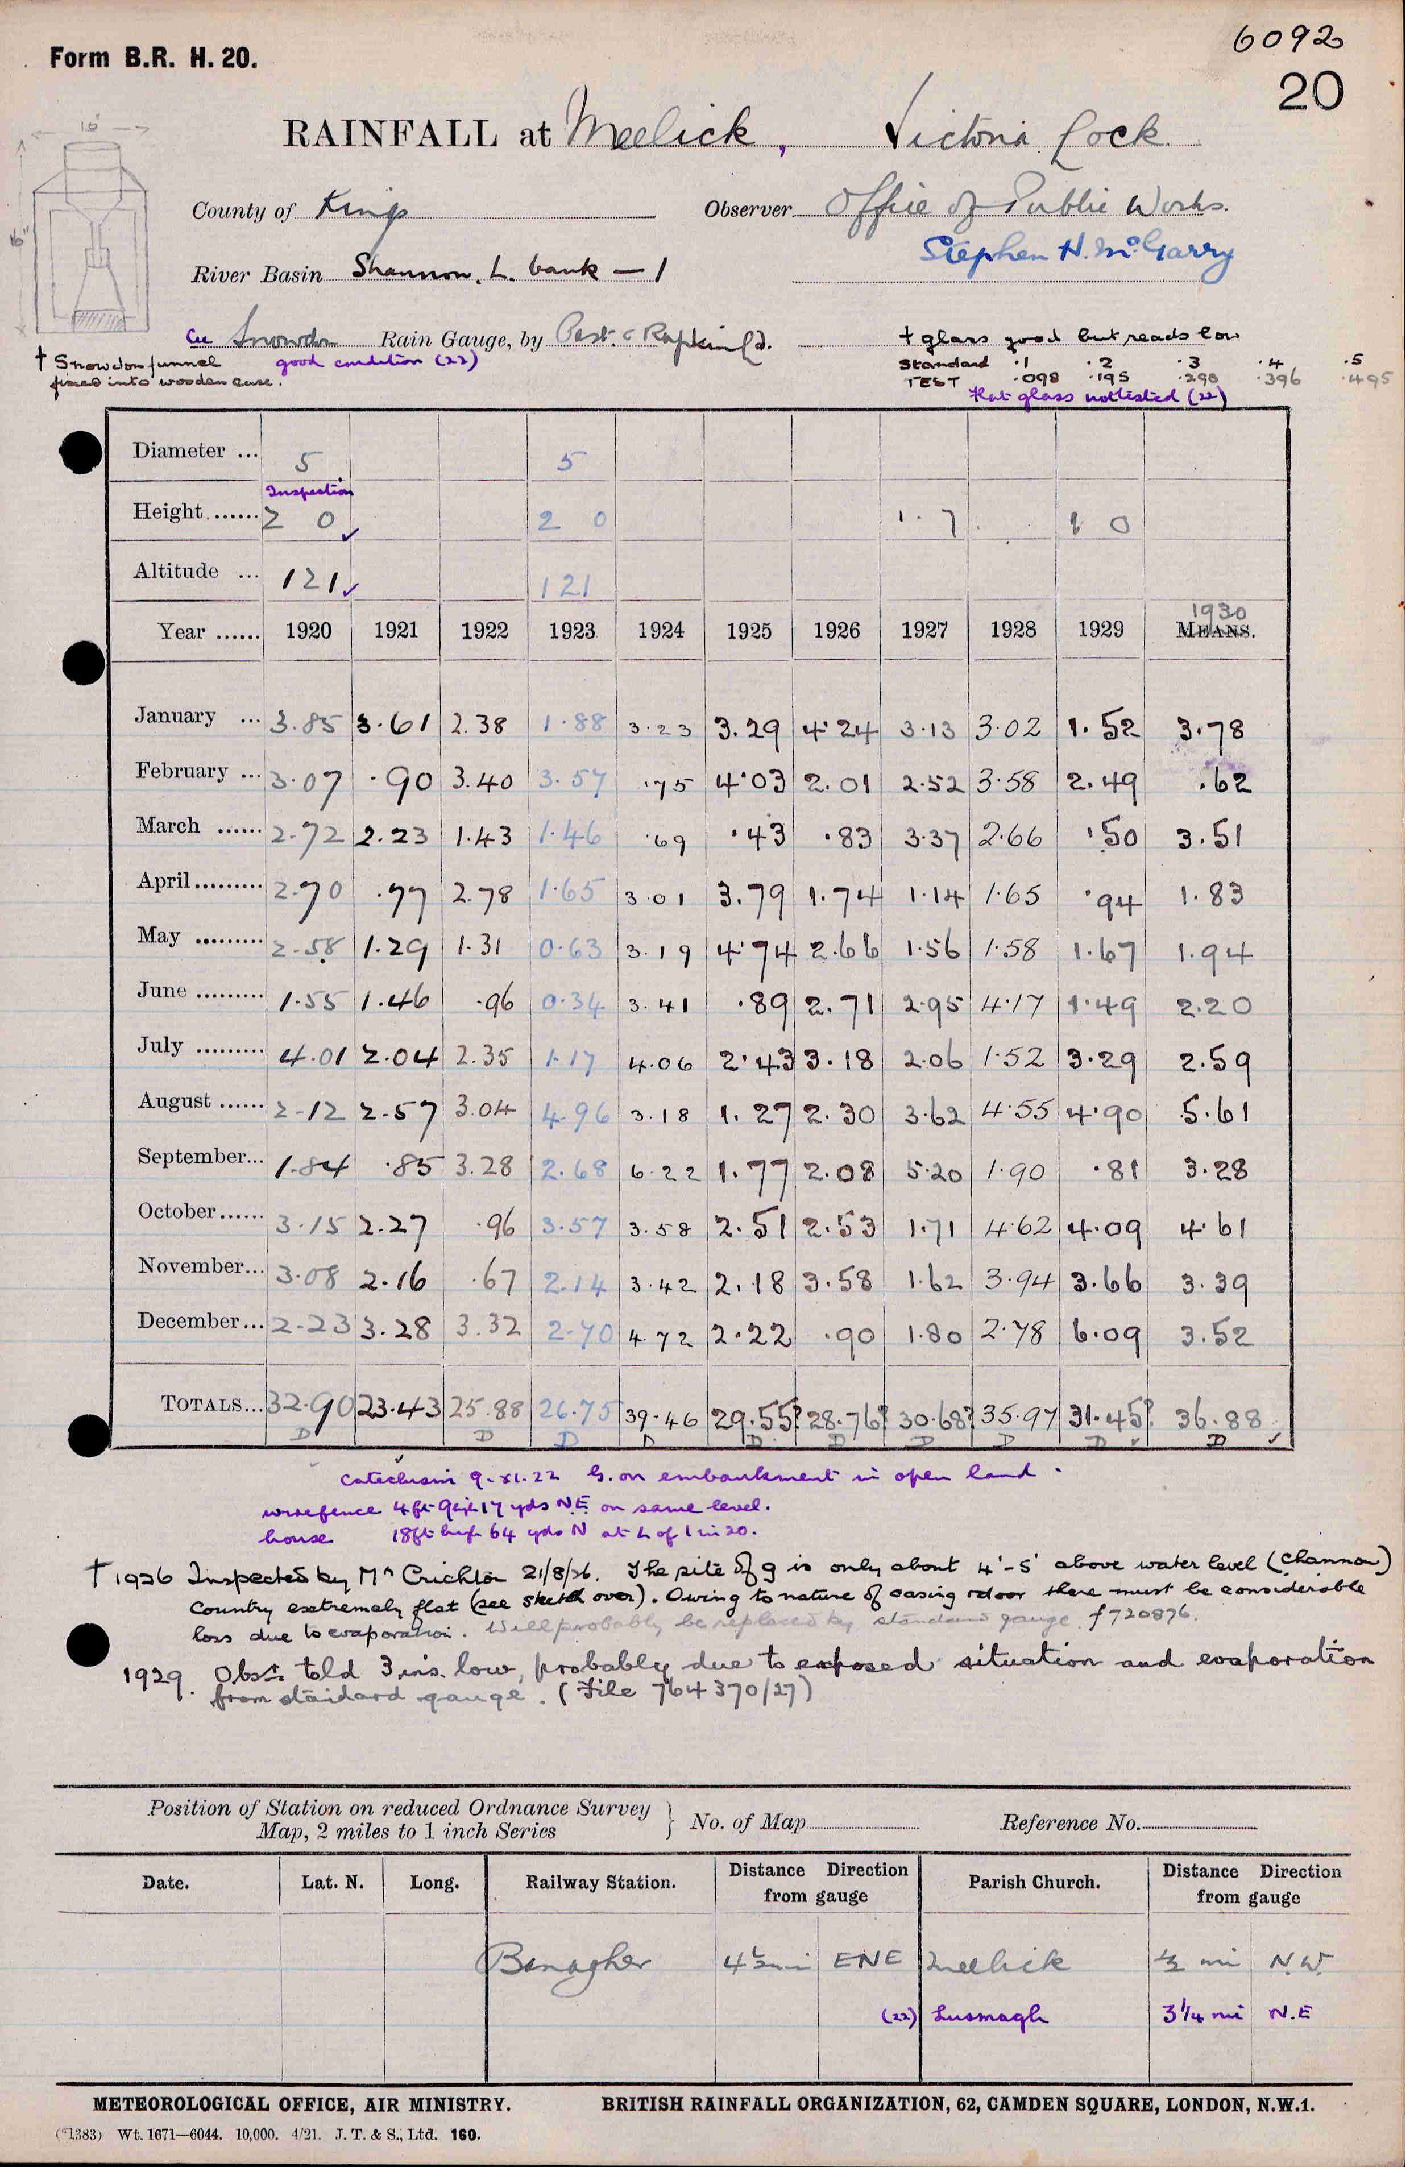 6092
Form B.R. H. 20.
20
RAINFALL at Meelick, Victoria Lock.
County of Kings Observer Office of Public Works.
Stephen H. McGarry
River Basin Shannon, L. bank — 1
Cu Snowdon Rain Gauge, by Past. & Rapkin Ld. † glass good but reads low
† Snowdon funnel good condition (22) Standard .1 .2 .3 .4 .5
fixed into wooden case. TEST .098 .195 .298 .396 .495
Flat glass not tested (22)
Diameter ... 5 5
Inspection
Height ...... 2 0 2 0 1.7 1 0
Altitude ... 121 121
1930
Year ...... 1920 1921 1922 1923 1924 1925 1926 1927 1928 1929 MEANS.
January ... 3.85 3.61 2.38 1.88 3.23 3.29 4.24 3.13 3.02 1.52 3.78
February ... 3.07 .90 3.40 3.57 .75 4.03 2.01 2.52 3.58 2.49 .62
March ...... 2.72 2.23 1.43 1.46 .69 .43 .83 3.37 2.66 .50 3.51
April ......... 2.70 .77 2.78 1.65 3.01 3.79 1.74 1.14 1.65 .94 1.83
May ......... 2.58 1.29 1.31 0.63 3.19 4.74 2.66 1.56 1.58 1.67 1.94
June ......... 1.55 1.46 .96 0.34 3.41 .89 2.71 2.95 4.17 1.49 2.20
July ......... 4.01 2.04 2.35 1.17 4.06 2.43 3.18 2.06 1.52 3.29 2.59
August ...... 2.12 2.57 3.04 4.96 3.18 1.27 2.30 3.62 4.55 4.90 5.61
September... 1.84 .85 3.28 2.68 6.22 1.77 2.08 5.20 1.90 .81 3.28
October...... 3.15 2.27 .96 3.57 3.58 2.51 2.53 1.71 4.62 4.09 4.61
November... 3.08 2.16 .67 2.14 3.42 2.18 3.58 1.62 3.94 3.66 3.39
December... 2.23 3.28 3.32 2.70 4.72 2.22 .90 1.80 2.78 6.09 3.52
TOTALS... 32.90 23.43 25.88 26.75 39.46 29.55? 28.76? 30.68? 35.97 31.45? 36.88
D D D D D D D D D
Catechism 9.XI.22 G. on embankment in open land.
wirefence 4ft 9 17 yds N.E on same level.
house 18ft high 64 yds N at L of 1 in 20.
† 1926 Inspected by Mr Crichton 21/8/26. The site of g is only about 4'-5' above water level (Shannon)
Country extremely flat (see sketch over). Owing to nature of casing door there must be considerable
loss due to evaporation. Will probably be replaced by standard gauge. f 720876.
1929. Obsr. told 3 ins. low, probably due to exposed situation and evaporation
from standard gauge. (File 764370/27)
Position of Station on reduced Ordnance Survey
Map, 2 miles to 1 inch Series } No. of Map Reference No.
Date. Lat. N. Long. Railway Station. Distance Direction from gauge Parish Church. Distance Direction from gauge
Banagher 4½ mi ENE Meelick ½ mi N.W.
(22) Lusmagh 3¼ mi N.E
METEOROLOGICAL OFFICE, AIR MINISTRY. BRITISH RAINFALL ORGANIZATION, 62, CAMDEN SQUARE, LONDON, N.W.1.
(*1383) Wt. 1671—6044. 10,000. 4/21. J. T. & S., Ltd. 160.